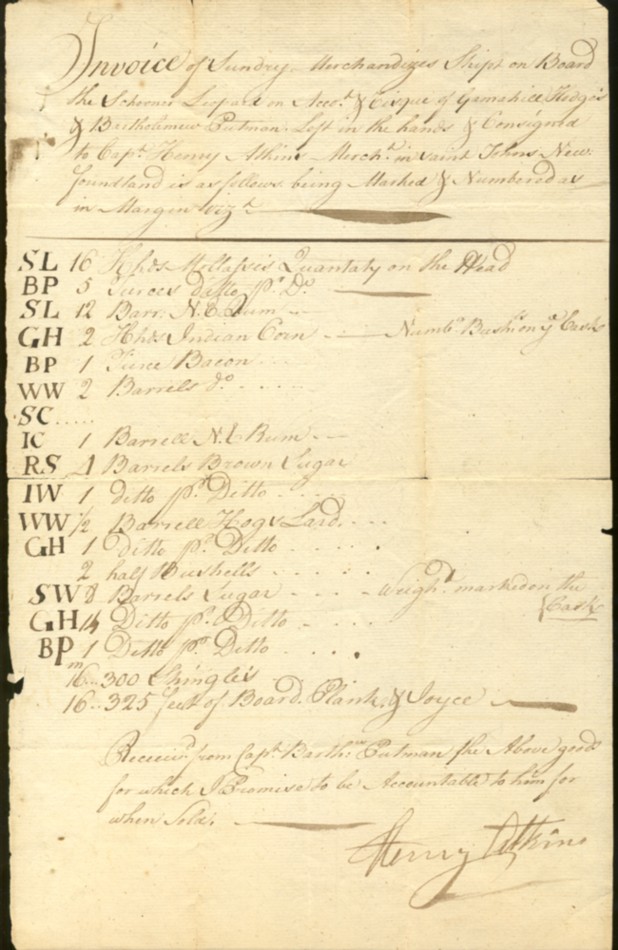 Invoice of Sundry Merchandizes Shipt on Board
the Schooner Leopard on Acco.t & Risque of Gamaliell Hodges
& Bartholmew Putman Left in the hands & Consigned
to Cap.t Henry Atkins Merch.t in saint Johns New
foundland is as follows being Marked & Numbered as
in Margin viz.t
SL 16 Hhds Mollasses Quantaty on the Head
BP 5 Tierces ditto p.r D.o
SL 12 Barr. N.E Rum
GH 2 Hhds Indian Corn Numb.r Bush on y.e Cask
BP 1 Tierce Bacon
WW 2 Barrels d.o
SC
IC 1 Barrell N.E Rum
RS 4 Barriels Brown Sugar
IW 1 ditto p.r Ditto
WW 1/2 Barrell Hogs Lard
GH 1 Ditto p.r Ditto
2 half Bushells
SW 8 Barrels Sugar Weigh.t marked on the
Cask
GH 14 Ditto p.r Ditto
BP 1 Ditto p.r Ditto
16m..300 Shingles
16..325 feet of Board, Plank & Joyce
Received from Cap.t Barth.w Putman the Above goods
for which I Promise to be Accountable to him for
when Sold.
Henry Atkins